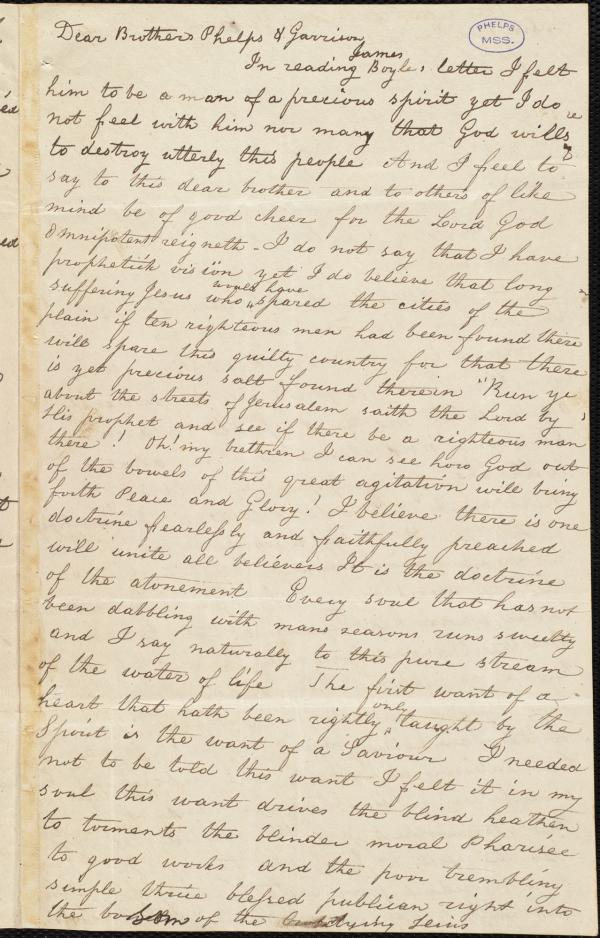 PHELPS
MSS.
Dear Brothers Phelps & Garrison,
In reading James Boyles letter I felt
him to be a man of a precious spirit yet I do
not feel with him nor many that God wills
to destroy utterly this people And I feel to
say to this dear brother and to others of like
mind be of good cheer for the Lord God
Omnipotent reigneth - I do not say that I have
prophetick vision yet I do believe that long
suffering Jesus who would have spared the cities of the
plain if ten righteous men had been found there
will spare this guilty country for that there
is yet precious salt found therein "Run ye
about the streets of Jerusalem saith the Lord by
His prophet and see if there be a righteous man
there! Oh! my brethren I can see how God out
of the bowels of this great agitation will bring
forth Peace and Glory! I believe there is one
doctrine fearlessly and faithfully preached
will unite all believers It is the doctrine
of the atonement Every soul that has not
been dabbling with mans reasons runs sweetly
and I say naturally to this pure stream
of the water of life The first want of a
heart that hath been rightly only taught by the
Spirit is the want of a Saviour I needed
not to be told this want I felt it in my
soul this want drives the blind heathen
to torments the blinder moral Pharisee
to good works and the poor trembling
simple thrice blessed publican right into
the bosom of the dying Jesus